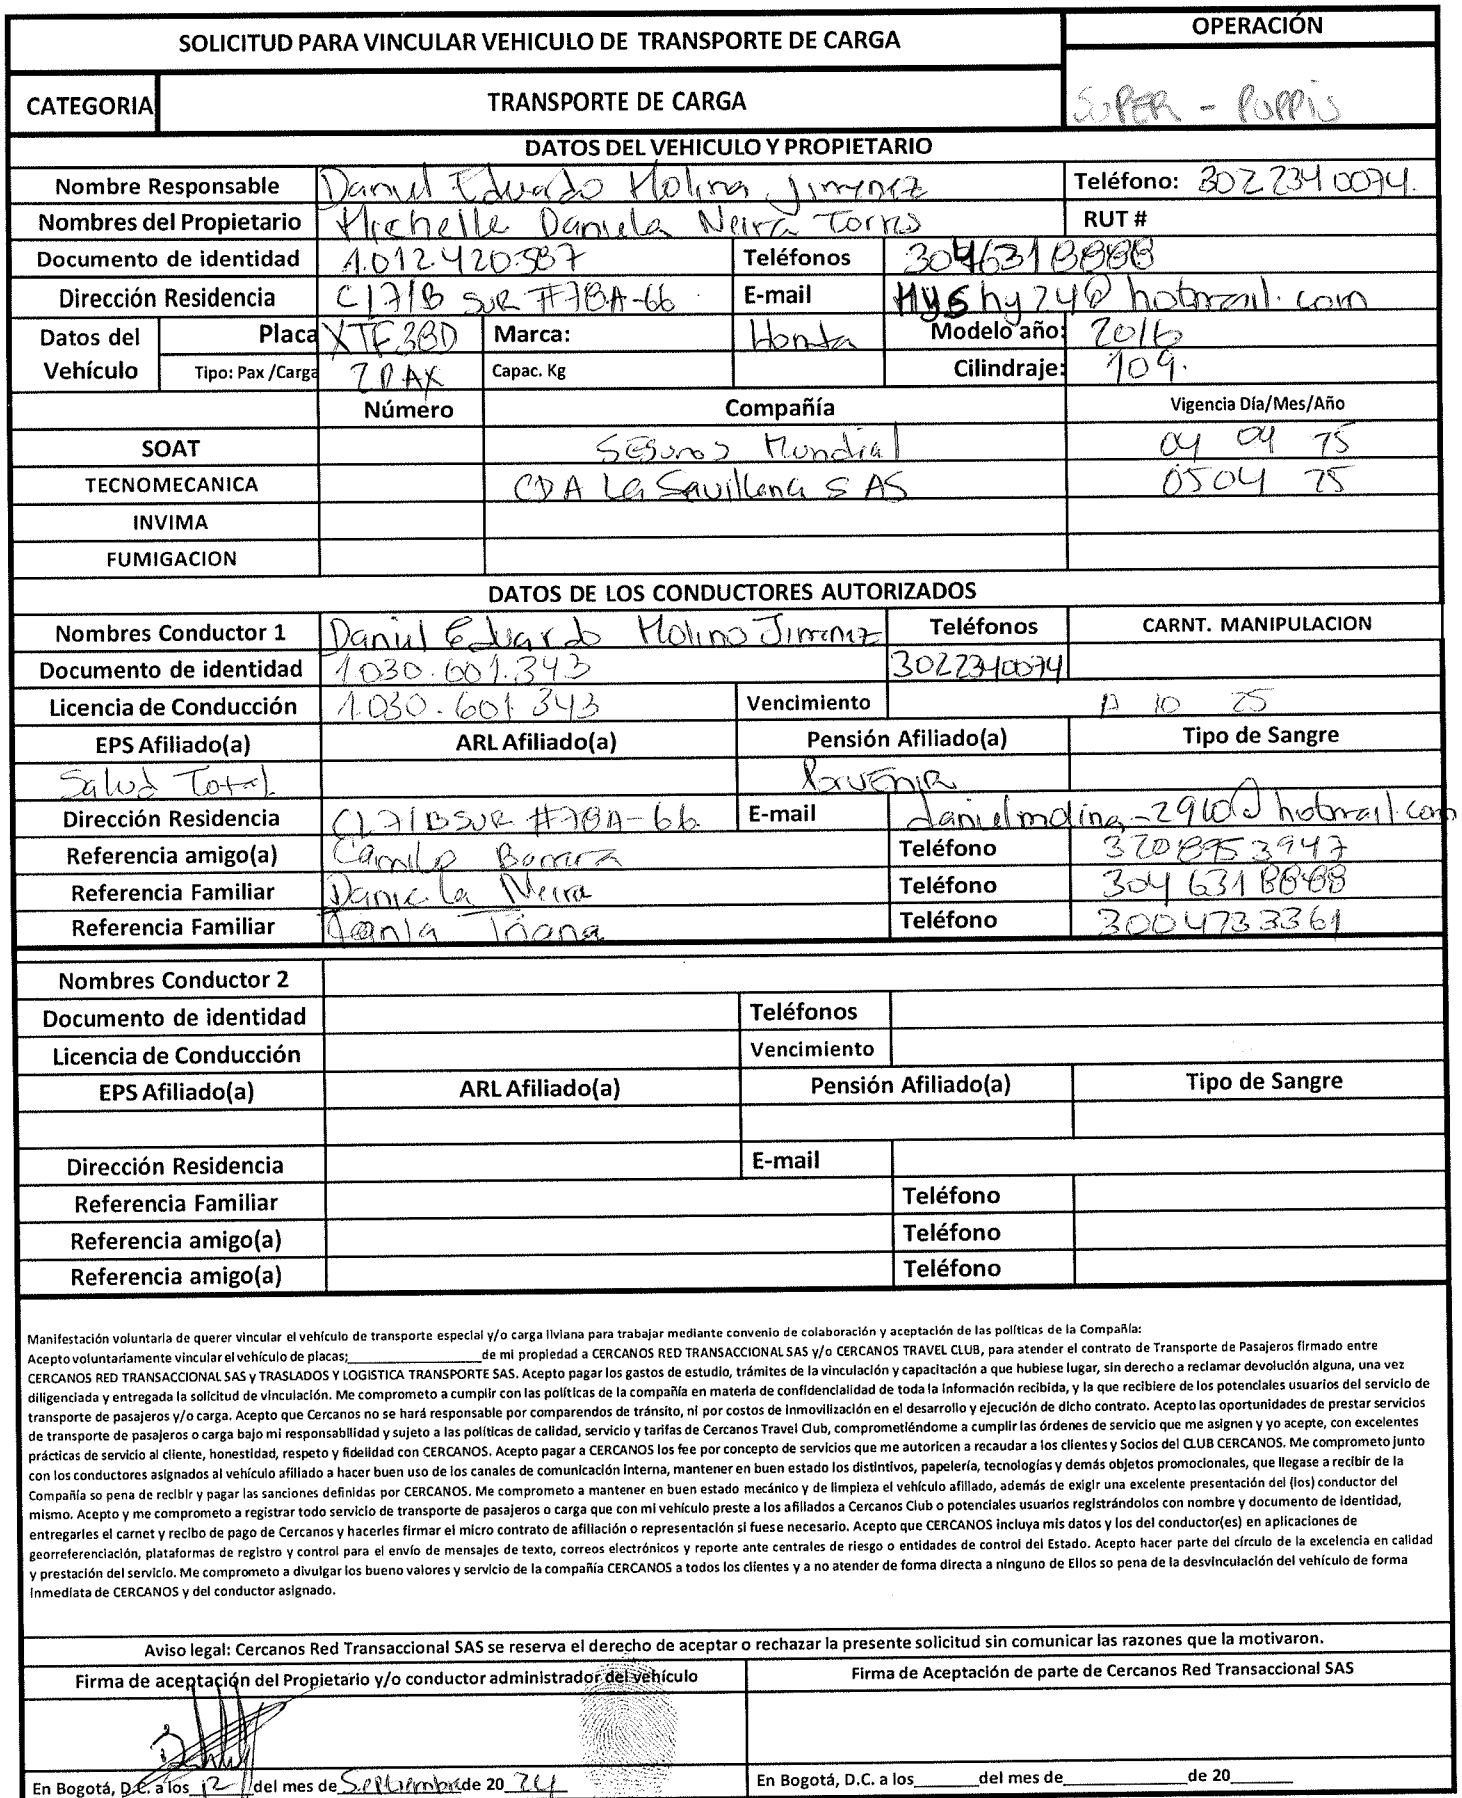 SOLICITUD PARA VINCULAR VEHICULO DE TRANSPORTE DE CARGA OPERACIÓN
CATEGORIA TRANSPORTE DE CARGA SUPER - PUPPIS
DATOS DEL VEHICULO Y PROPIETARIO
Nombre Responsable Daniel Eduardo Molina Jimenez Teléfono: 3022340074.
Nombres del Propietario Michelle Daniela Neira Torres RUT #
Documento de identidad 1.012.420.587 Teléfonos 3046318888
Dirección Residencia Cl 71B SUR #78A-66 E-mail Myshy24@hotmail.com
Datos del Vehículo Placa XTF38D Marca: Honda Modelo año: 2016
Tipo: Pax /Carga 2 PAX Capac. Kg Cilindraje: 109.
Número Compañía Vigencia Día/Mes/Año
SOAT Seguros Mundial 04 04 25
TECNOMECANICA CDA La Sevillana SAS 05 04 25
INVIMA
FUMIGACION
DATOS DE LOS CONDUCTORES AUTORIZADOS
Nombres Conductor 1 Daniel Eduardo Molino Jimenez Teléfonos CARNT. MANIPULACION
Documento de identidad 1030.601.343 3022340074
Licencia de Conducción 1.030.601.343 Vencimiento 10 25
EPS Afiliado(a) ARL Afiliado(a) Pensión Afiliado(a) Tipo de Sangre
Salud Total Porvenir
Dirección Residencia Cl 71B SUR #78A-66 E-mail danielmolina-2910@hotmail.com
Referencia amigo(a) Camilo Barrera Teléfono 3208953947
Referencia Familiar Daniela Neira Teléfono 304 6318888
Referencia Familiar Tania Triana Teléfono 3004733361
Nombres Conductor 2
Documento de identidad Teléfonos
Licencia de Conducción Vencimiento
EPS Afiliado(a) ARL Afiliado(a) Pensión Afiliado(a) Tipo de Sangre
Dirección Residencia E-mail
Referencia Familiar Teléfono
Referencia amigo(a) Teléfono
Referencia amigo(a) Teléfono
Manifestación voluntaria de querer vincular el vehículo de transporte especial y/o carga liviana para trabajar mediante convenio de colaboración y aceptación de las políticas de la Compañía:
Acepto voluntariamente vincular el vehículo de placas;____________________de mi propiedad a CERCANOS RED TRANSACCIONAL SAS y/o CERCANOS TRAVEL CLUB, para atender el contrato de Transporte de Pasajeros firmado entre
CERCANOS RED TRANSACCIONAL SAS y TRASLADOS Y LOGISTICA TRANSPORTE SAS. Acepto pagar los gastos de estudio, trámites de la vinculación y capacitación a que hubiese lugar, sin derecho a reclamar devolución alguna, una vez
diligenciada y entregada la solicitud de vinculación. Me comprometo a cumplir con las políticas de la compañía en materia de confidencialidad de toda la información recibida, y la que recibiere de los potenciales usuarios del servicio de
transporte de pasajeros y/o carga. Acepto que Cercanos no se hará responsable por comparendos de tránsito, ni por costos de inmovilización en el desarrollo y ejecución de dicho contrato. Acepto las oportunidades de prestar servicios
de transporte de pasajeros o carga bajo mi responsabilidad y sujeto a las políticas de calidad, servicio y tarifas de Cercanos Travel Club, comprometiéndome a cumplir las órdenes de servicio que me asignen y yo acepte, con excelentes
prácticas de servicio al cliente, honestidad, respeto y fidelidad con CERCANOS. Acepto pagar a CERCANOS los fee por concepto de servicios que me autoricen a recaudar a los clientes y Socios del CLUB CERCANOS. Me comprometo junto
con los conductores asignados al vehículo afiliado a hacer buen uso de los canales de comunicación interna, mantener en buen estado los distintivos, papelería, tecnologías y demás objetos promocionales, que llegase a recibir de la
Compañía so pena de recibir y pagar las sanciones definidas por CERCANOS. Me comprometo a mantener en buen estado mecánico y de limpieza el vehículo afiliado, además de exigir una excelente presentación del (los) conductor del
mismo. Acepto y me comprometo a registrar todo servicio de transporte de pasajeros o carga que con mi vehículo preste a los afiliados a Cercanos Club o potenciales usuarios registrándolos con nombre y documento de identidad,
entregarles el carnet y recibo de pago de Cercanos y hacerles firmar el micro contrato de afiliación o representación si fuese necesario. Acepto que CERCANOS incluya mis datos y los del conductor(es) en aplicaciones de
georreferenciación, plataformas de registro y control para el envío de mensajes de texto, correos electrónicos y reporte ante centrales de riesgo o entidades de control del Estado. Acepto hacer parte del círculo de la excelencia en calidad
y prestación del servicio. Me comprometo a divulgar los bueno valores y servicio de la compañía CERCANOS a todos los clientes y a no atender de forma directa a ninguno de Ellos so pena de la desvinculación del vehículo de forma
inmediata de CERCANOS y del conductor asignado.
Aviso legal: Cercanos Red Transaccional SAS se reserva el derecho de aceptar o rechazar la presente solicitud sin comunicar las razones que la motivaron.
Firma de aceptación del Propietario y/o conductor administrador del vehículo Firma de Aceptación de parte de Cercanos Red Transaccional SAS
En Bogotá, D.C. a los 12 del mes de Septiembre de 20 24 En Bogotá, D.C. a los_______del mes de_____________de 20_______